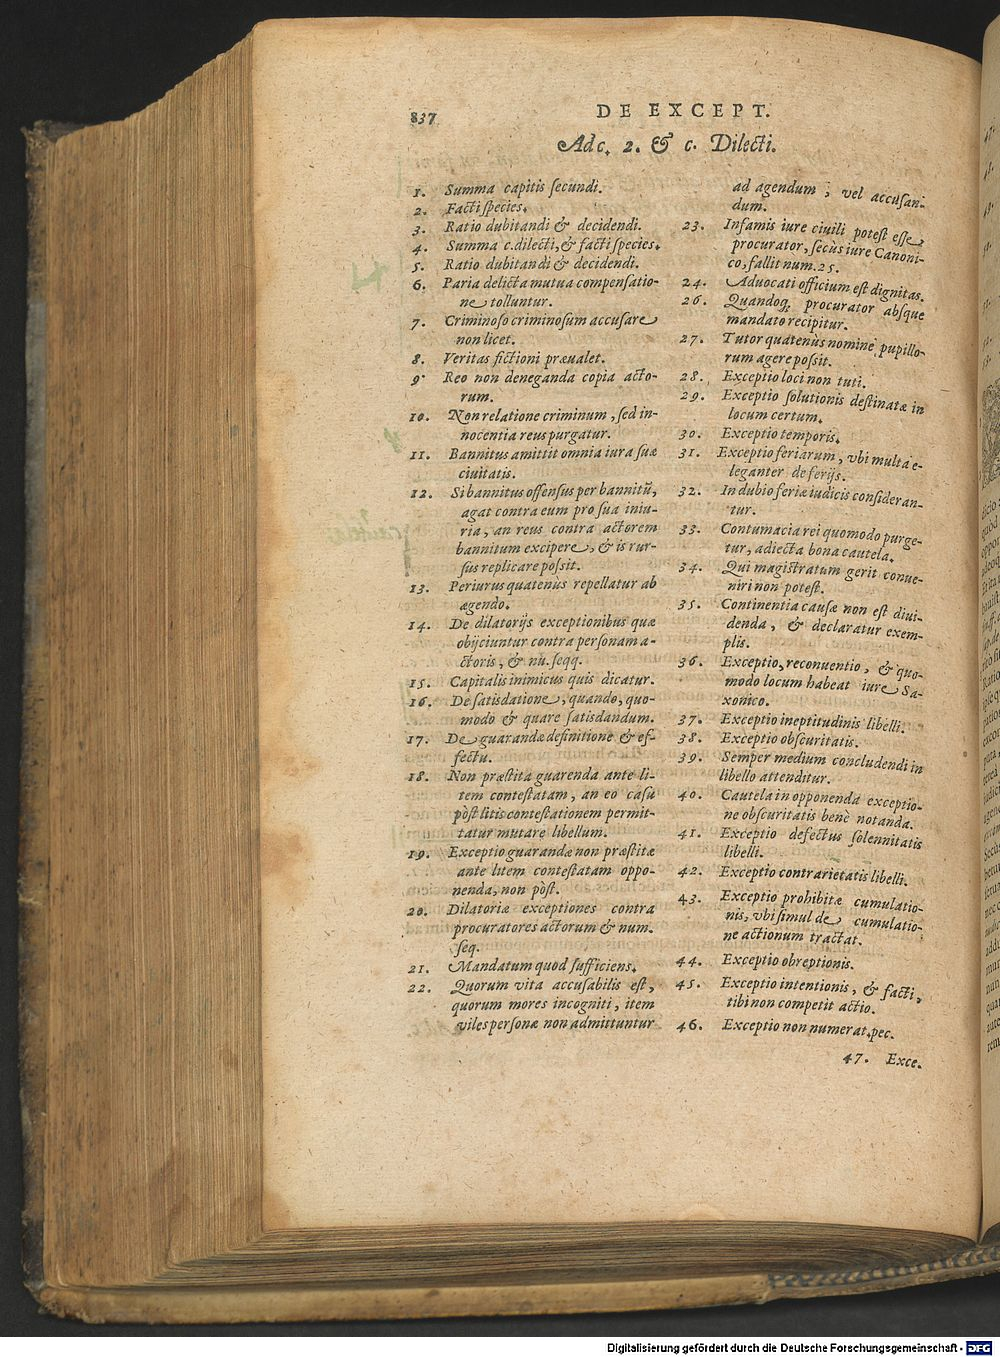 837
DE EXCEPT.
Ad c. 2. & c. Dilecti.
1. Summa capitis ſecundi.
2. Facti ſpecies.
3. Ratio dubitandi & decidendi.
4. Summa c. dilecti, & facti ſpecies.
5. Ratio dubitandi & decidendi.
6. Paria delicta mutua compenſatio-
ne tolluntur.
7. Criminoſo criminoſum accuſare
non licet.
8. Veritas fictioni præualet.
9. Reo non deneganda copia acto-
rum.
10. Non relatione criminum, ſed in-
nocentia reus purgatur.
11. Bannitus amittit omnia iura ſuæ
ciuitatis.
12. Si bannitus offenſus per bannitũ,
agat contra eum pro ſua iniu-
ria, an reus contra actorem
bannitum excipere, & is rur-
ſus replicare poſsit.
13. Periurus quatenùs repellatur ab
agendo.
14. De dilatorijs exceptionibus quæ
obijciuntur contra perſonam a-
ctoris, & nũ. ſeqq.
15. Capitalis inimicus quis dicatur.
16. De ſatisdatione, quando, quo-
modo & quare ſatisdandum.
17. De guarandæ definitione & ef-
fectu.
18. Non præstita guarenda ante li-
tem contestatam, an eo caſu
pòst litis contestationem permit-
tatur mutare libellum.
19. Exceptio guarandæ non præstitæ
ante litem contestatam oppo-
nenda, non pòst.
20. Dilatoriæ exceptiones contra
procuratores actorum & num.
ſeq.
21. Mandatum quod ſufficiens.
22. Quorum vita accuſabilis est,
quorum mores incogniti, item
viles perſonæ non admittuntur
ad agendum, vel accuſan-
dum.
23. Infamis iure ciuili potest eſſe
procurator, ſecùs iure Canoni-
co, fallit num. 25.
24. Aduocati officium est dignitas.
26. Quandoq; procurator absque
mandato recipitur.
27. Tutor quatenùs nomine pupillo-
rum agere poſsit.
28. Exceptio loci non tuti.
29. Exceptio ſolutionis destinatæ in
locum certum.
30. Exceptio temporis.
31. Exceptio feriarum, vbi multa e-
leganter de ferijs.
32. In dubio feriæ iudicis conſideran-
tur.
33. Contumacia rei quomodo purge-
tur, adiecta bona cautela.
34. Qui magistratum gerit conue-
niri non potest.
35. Continentia cauſæ non est diui-
denda, & declaratur exem-
plis.
36. Exceptio, reconuentio, & quo-
modo locum habeat iure Sa-
xonico.
37. Exceptio ineptitudinis libelli.
38. Exceptio obſcuritatis.
39. Semper medium concludendi in
libello attenditur.
40. Cautela in opponenda exceptio-
ne obſcuritatis benè notanda.
41. Exceptio defectus ſolennitatis
libelli.
42. Exceptio contrarietatis libelli.
43. Exceptio prohibitæ cumulatio-
nis, vbi ſimul de cumulatio-
ne actionum tractat.
44. Exceptio obreptionis.
45. Exceptio intentionis, & facti,
tibi non competit actio.
46. Exceptio non numerat. pec.
47. Exce.
Digitalisierung gefördert durch die Deutsche Forschungsgemeinschaft - DFG